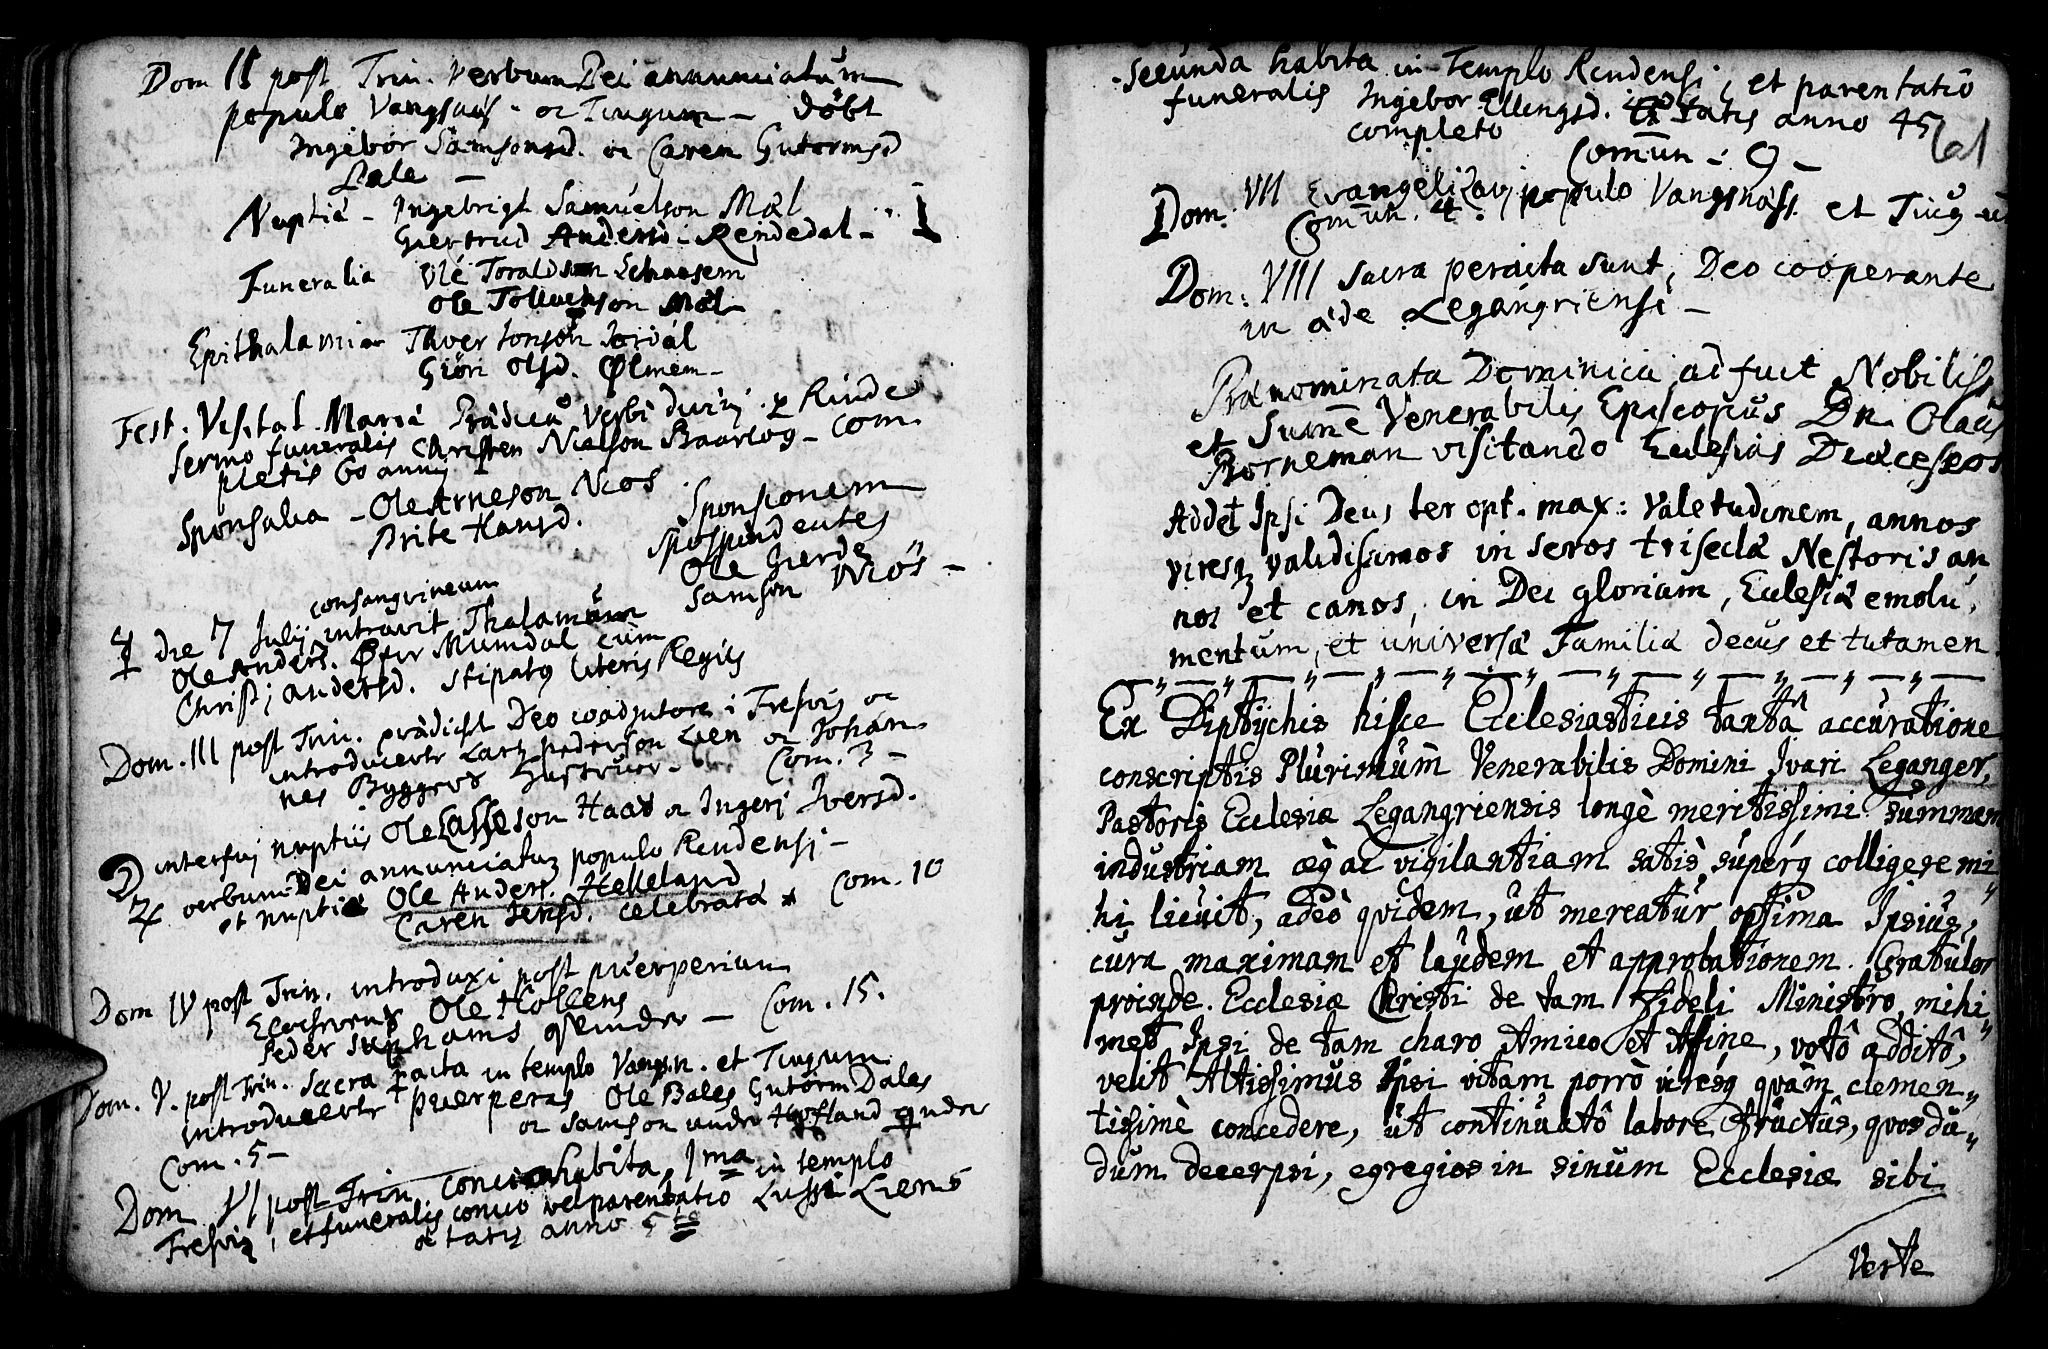 Dom II post Trin. Verbum Dei annunciatum
populo Vangsnas - oc Tingum - döbt
Ingebor Samsonsd. oc Caren Gutormsd
Dale -
Nuptiæ - Ingebrigt Samuelson Mæl
Giertrud Andersd: Rendedal -
Funeralia Ole Toraldson
Ole Tolleuson Mæl
Epithalamia Thver Jonson
Giöri Olsd. Ølmem -
Fest. Visitat. Mariæ Prædica Verbi Divinj Rinde
Sermo funeralis Christen Nielson Baarlog - Com
pletis 60 annis
Sponsalia - Ole Arneson Nios
Brite Hansd.
Sponsionem
Spospondentes
Ole Hierde
Samson Niös -
consangvineum
♀ die 7 Julij intravit Thalamum
Ole Anders. Øfer Mumdal cum
Christj Andersd. stipatq literis Regiis
Dom. III post Trin. prædic Deo coadjutore i Fresvig oc
introducertr Lars pederson Lien oc Johan
nes Byggers Hustruer - Com. 3 -
☽ interfuj nuptiis Ole Lasseson Haas oc Ingerj Iversd.
♃ verbum Dei annunciatum populo Rindensj -
et nuptiæ Ole Anders. Helleland
Caren Jensd. celebrata Com. 10
Dom IV post Trin. introduxi post puerperium
Ole Hollens
Peder qvinder - Com. 15.
Dom. V. post Trin. Sacra pacta in templo Vangsn. et Tingum
introducertr puerperas Ole Bales Gutorm Dales
oc Samson andre Hofland qvnder
Com. 5 -
Dom VI post Trin. Concio habita, Ima in templo
Fresvig, et funeralis concio vel parentatio Liens
ætatis anno 5
secunda habita in Templo Rendensi, et parentatio
funeralis Ingebor Ellingsd. ætatis anno 45
completo 61
Comun - 9 -
Dom: VII Evangelizavi populo Vangsnass. et Ting
Comun. 4.
Dom: VIII sacra peracta sunt, Deo cooperante
in æde Legangriensi -
Prænominata Dominica adfuit Nobiliss
et Sumè Venerabilis Episcopus Dn. Olaus
Borneman visitando Eclesias Dioeceseos
Addet Ipsi Deus ter opt. max: Valetudinem, annos
viresq validissimos in seros trisecla Nestoris an
nos et canos, in Dei gloriam, Eclesiæ emolu,
mentum, et universæ Familiæ decus et tutamen.
Ex Diptychis hisce Ecclesiasticis tantâ accuratione
conscriptis Plurimùm Venerabilis Domini Ivari Leganger,
Pastoris Ecclesiæ Legangriensis longè meritissimi summam
industriam æqac vigilantiam satis superq colligere mi„
hi licuit, adeò qvidem, ut mereatur optima Ipsius,
cura maximam et laudem et approbationem. Gratulor
proinde Ecclesiæ Christi de tam Fideli Ministro, mihi„
met Ipsi de tam charo Amico et Affine, votô additô,
velit Altissimus Ipsi vitam porrò viresq quàm clemen„
tissimè concedere, ut continuatô labore fructus, quos du„
dum decerpsi, egregios in sinum Ecclesiæ sibi
Verte